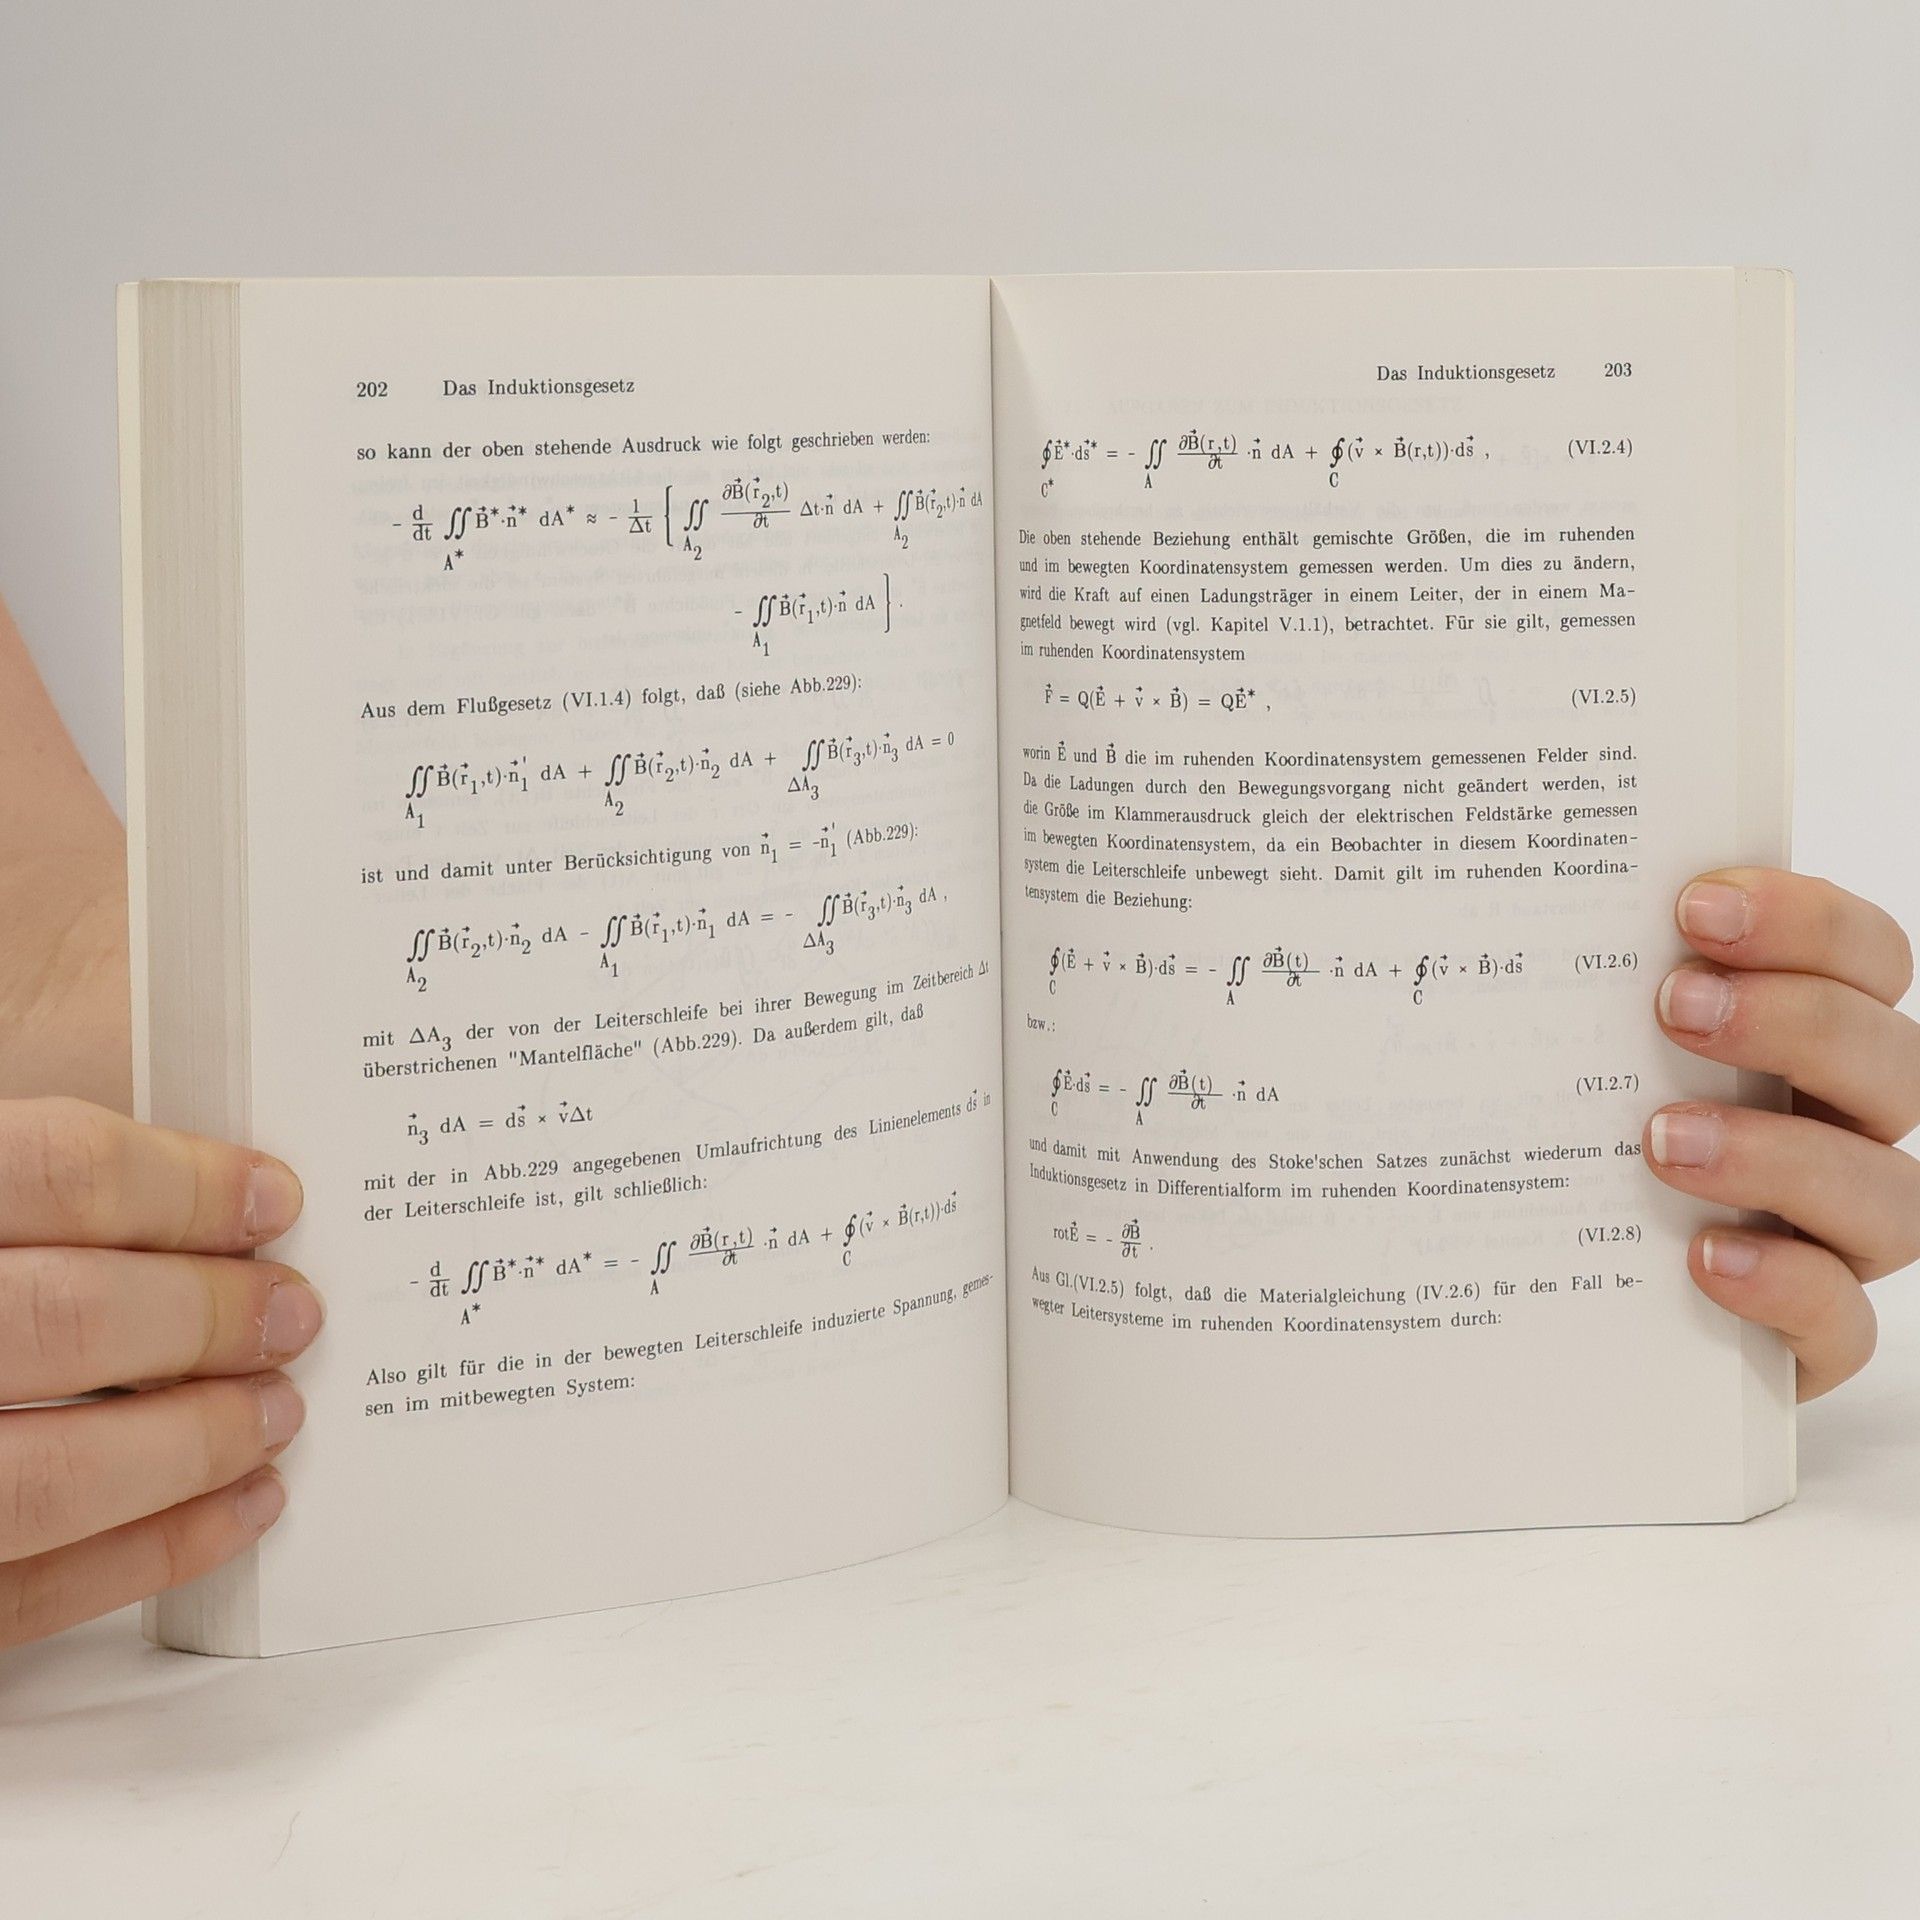 202 Das Induktionsgesetz
so kann der oben stehende Ausdruck wie folgt geschrieben werden:
- d/dt ∬ B⃗*·n⃗* dA* ≈ - 1/Δt { ∬ ∂B⃗(r⃗₂,t)/∂t Δt·n⃗ dA + ∬ B⃗(r⃗₂,t)·n⃗ dA
A* A₂ A₂
- ∬ B⃗(r⃗₁,t)·n⃗ dA } .
A₁
Aus dem Flußgesetz (VI.1.4) folgt, daß (siehe Abb.229):
∬ B⃗(r⃗₁,t)·n⃗₁' dA + ∬ B⃗(r⃗₂,t)·n⃗₂ dA + ∬ B⃗(r⃗₃,t)·n⃗₃ dA = 0
A₁ A₂ ΔA₃
ist und damit unter Berücksichtigung von n⃗₁ = -n⃗₁' (Abb.229):
∬ B⃗(r⃗₂,t)·n⃗₂ dA - ∬ B⃗(r⃗₁,t)·n⃗₁ dA = - ∬ B⃗(r⃗₃,t)·n⃗₃ dA ,
A₂ A₁ ΔA₃
mit ΔA₃ der von der Leiterschleife bei ihrer Bewegung im Zeitbereich Δt
überstrichenen "Mantelfläche" (Abb.229). Da außerdem gilt, daß
n⃗₃ dA = ds⃗ × v⃗Δt
mit der in Abb.229 angegebenen Umlaufrichtung des Linienelements ds⃗ in
der Leiterschleife ist, gilt schließlich:
- d/dt ∬ B⃗*·n⃗* dA* = - ∬ ∂B⃗(r,t)/∂t ·n⃗ dA + ∮(v⃗ × B⃗(r,t))·ds⃗
A* A C
Also gilt für die in der bewegten Leiterschleife induzierte Spannung, gemes-
sen im mitbewegten System:
Das Induktionsgesetz 203
∮E⃗*·ds⃗* = - ∬ ∂B⃗(r,t)/∂t ·n⃗ dA + ∮(v⃗ × B⃗(r,t))·ds⃗ , (VI.2.4)
C* A C
Die oben stehende Beziehung enthält gemischte Größen, die im ruhenden
und im bewegten Koordinatensystem gemessen werden. Um dies zu ändern,
wird die Kraft auf einen Ladungsträger in einem Leiter, der in einem Ma-
gnetfeld bewegt wird (vgl. Kapitel V.1.1), betrachtet. Für sie gilt, gemessen
im ruhenden Koordinatensystem
F⃗ = Q(E⃗ + v⃗ × B⃗) = QE⃗* , (VI.2.5)
worin E⃗ und B⃗ die im ruhenden Koordinatensystem gemessenen Felder sind.
Da die Ladungen durch den Bewegungsvorgang nicht geändert werden, ist
die Größe im Klammerausdruck gleich der elektrischen Feldstärke gemessen
im bewegten Koordinatensystem, da ein Beobachter in diesem Koordinaten-
system die Leiterschleife unbewegt sieht. Damit gilt im ruhenden Koordina-
tensystem die Beziehung:
∮(E⃗ + v⃗ × B⃗)·ds⃗ = - ∬ ∂B⃗(t)/∂t ·n⃗ dA + ∮(v⃗ × B⃗)·ds⃗ (VI.2.6)
C A C
bzw.:
∮E⃗·ds⃗ = - ∬ ∂B⃗(t)/∂t ·n⃗ dA (VI.2.7)
C A
und damit mit Anwendung des Stoke'schen Satzes zunächst wiederum das
Induktionsgesetz in Differentialform im ruhenden Koordinatensystem:
rotE⃗ = - ∂B⃗/∂t . (VI.2.8)
Aus Gl.(VI.2.5) folgt, daß die Materialgleichung (IV.2.6) für den Fall be-
wegter Leitersysteme im ruhenden Koordinatensystem durch: